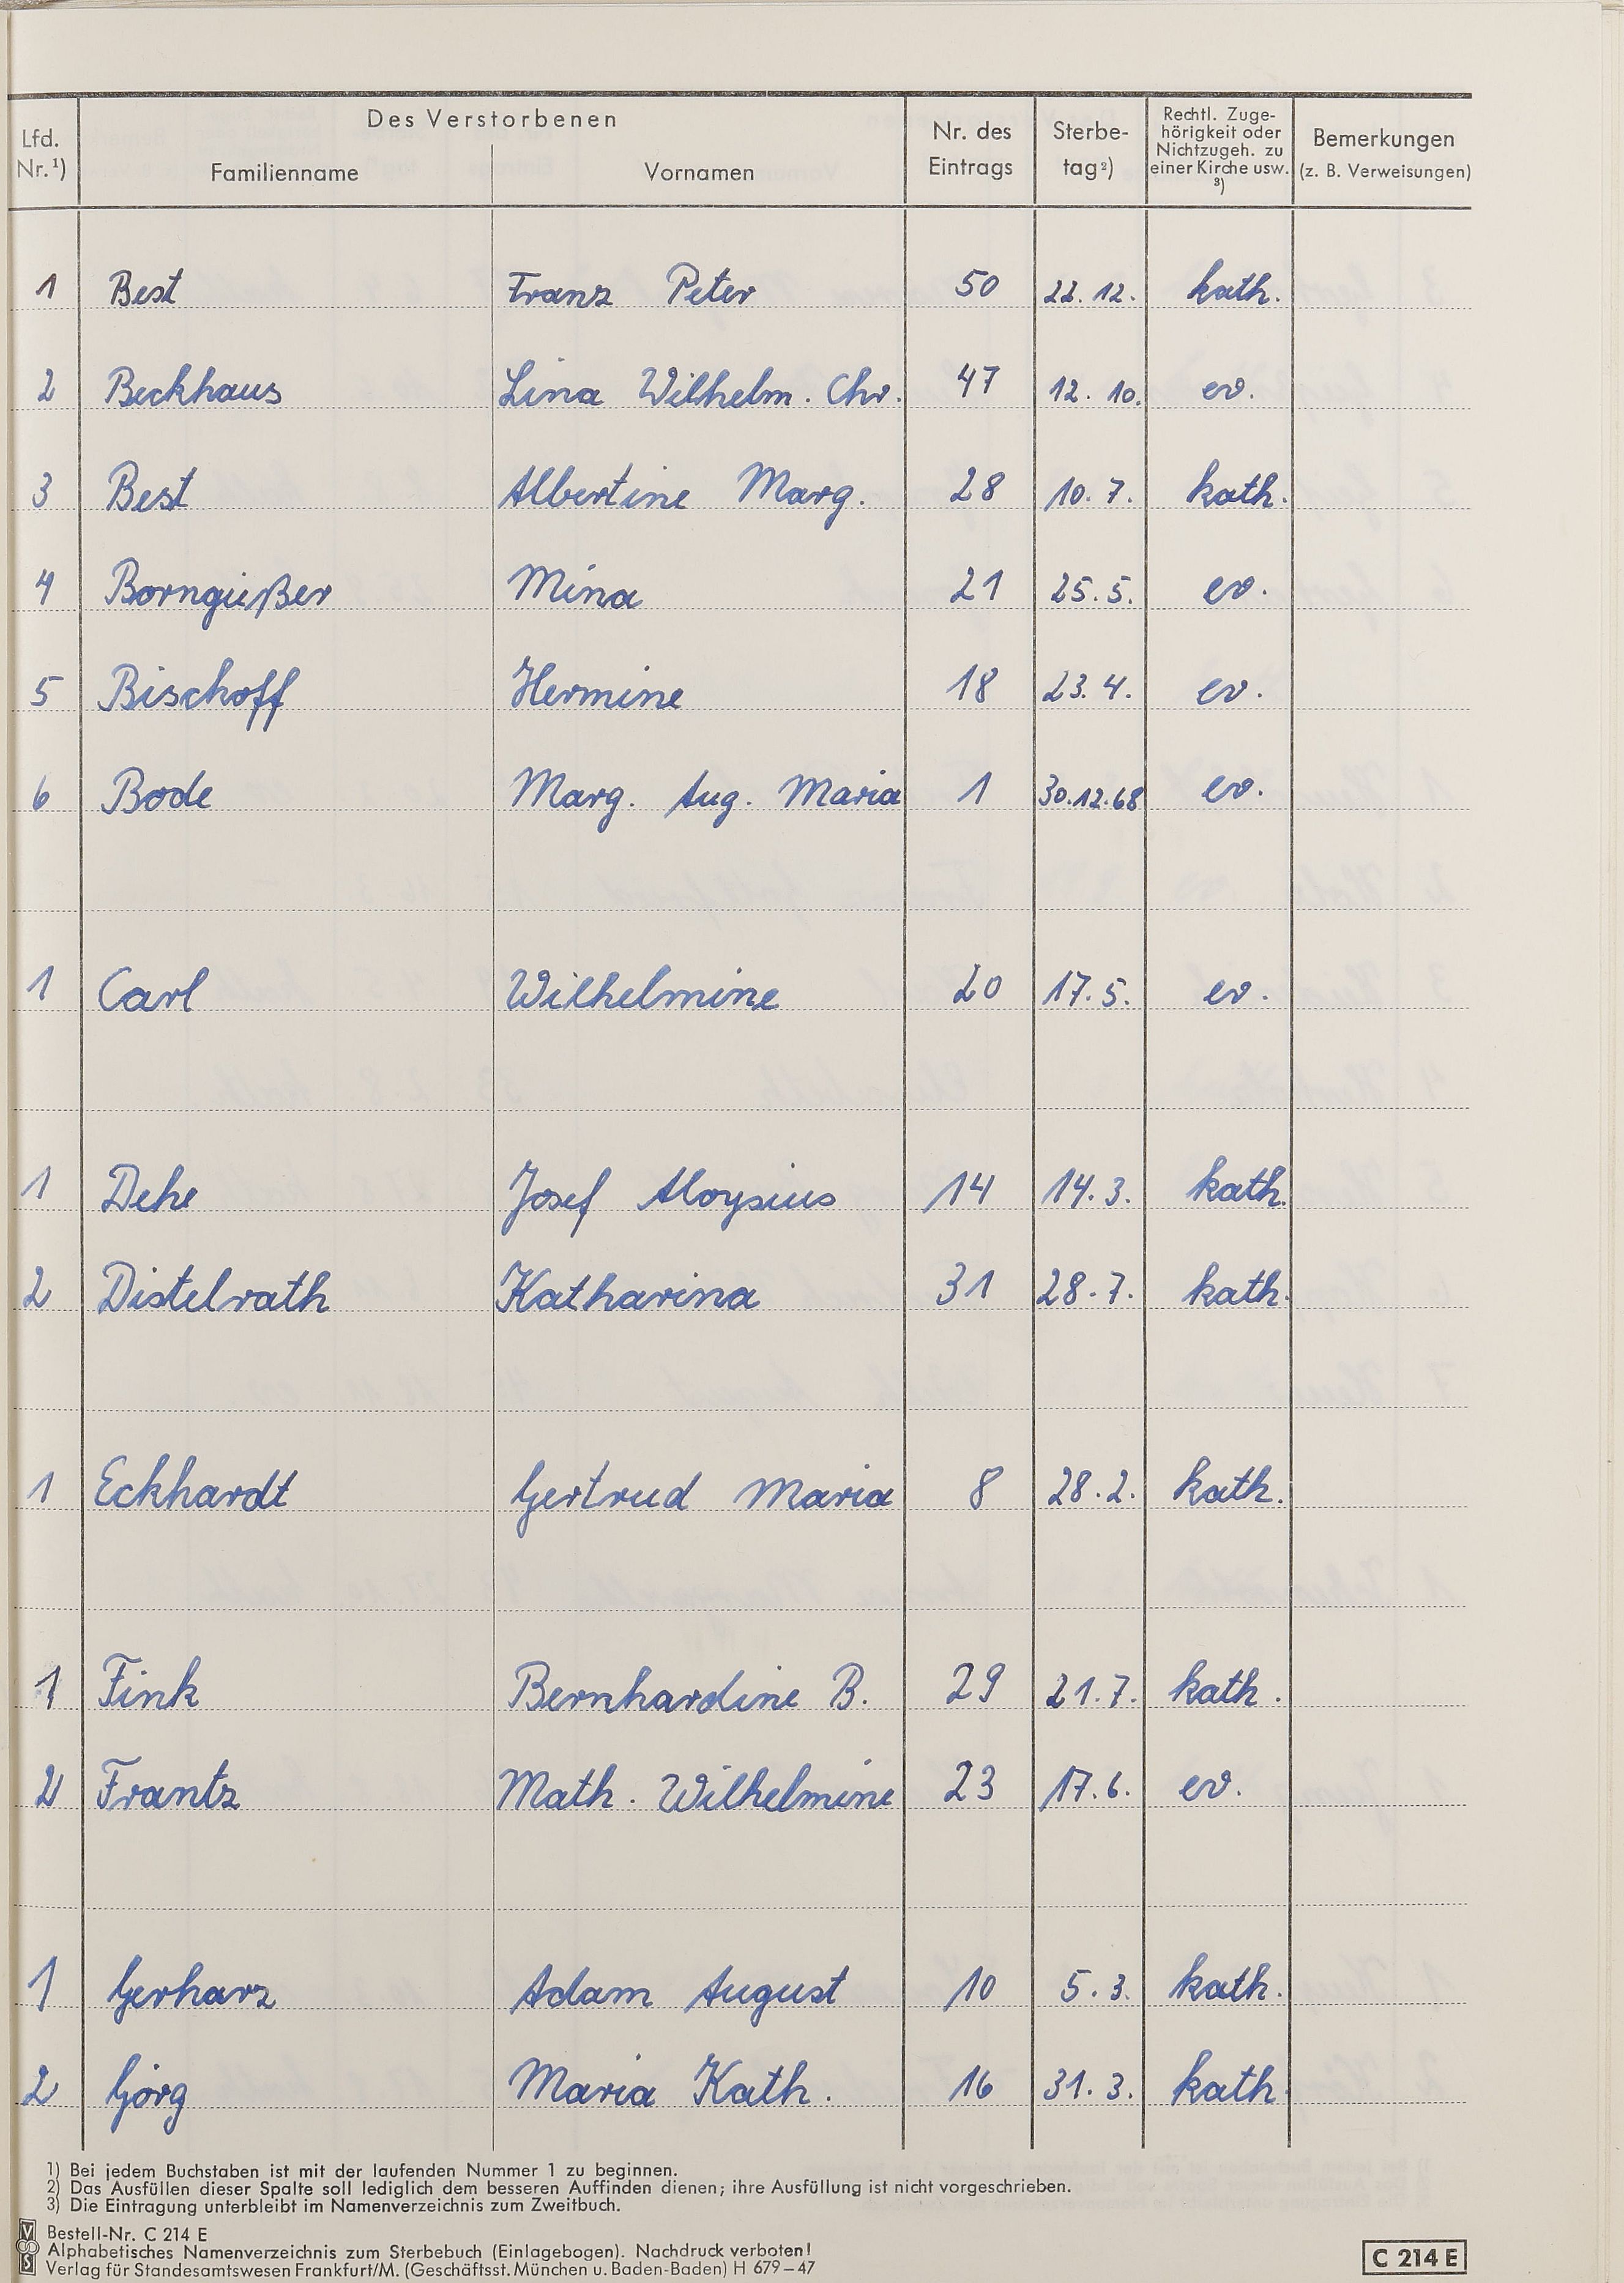 Lfd. Nr.¹) Des Verstorbenen Familienname Vornamen Nr. des Eintrags Sterbe- tag²) Rechtl. Zuge- hörigkeit oder Nichtzugeh. zu einer Kirche usw. ³) Bemerkungen (z. B. Verweisungen)
1 Best Franz Peter 50 22. 12. kath.
2 Beckhaus Lina Wilhelm. Chr. 47 12. 10. ev.
3 Best Albertine Marg. 28 10. 7. kath.
4 Borngießer Mina 21 25. 5. ev.
5 Bischoff Hermine 18 23. 4. ev.
6 Bode Marg. Aug. Maria 1 30.12.68 ev.
1 Carl Wilhelmine 20 17. 5. ev.
1 Dehe Josef Aloysius 14 14. 3. kath.
2 Distelrath Katharina 31 28. 7. kath.
1 Eckhardt Gertrud Maria 8 28. 2. kath.
1 Fink Bernhardine B. 29 21. 7. kath.
2 Frantz Math. Wilhelmine 23 17. 6. ev.
1 Gerharz Adam August 10 5. 3. kath.
2 Görg Maria Kath. 16 31. 3. kath.
1) Bei jedem Buchstaben ist mit der laufenden Nummer 1 zu beginnen.
2) Das Ausfüllen dieser Spalte soll lediglich dem besseren Auffinden dienen; ihre Ausfüllung ist nicht vorgeschrieben.
3) Die Eintragung unterbleibt im Namenverzeichnis zum Zweitbuch.
Bestell-Nr. C 214 E
Alphabetisches Namenverzeichnis zum Sterbebuch (Einlagebogen). Nachdruck verboten!
Verlag für Standesamtswesen Frankfurt/M. (Geschäftsst. München u. Baden-Baden) H 679–47
C 214 E